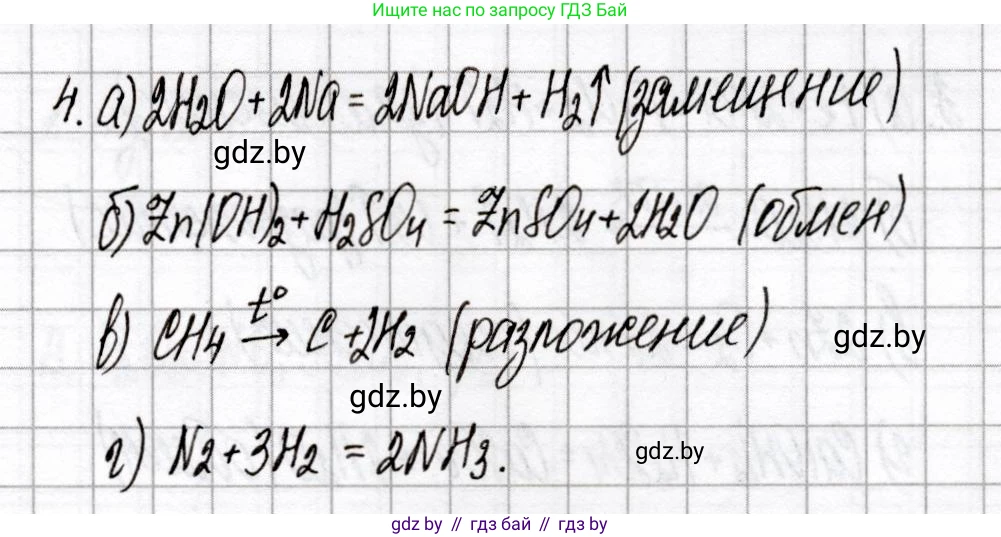 Ищите нас по запросу ГДЗ Бай
4. а) 2H₂O + 2Na = 2NaOH + H₂↑ (замещение)
gdz.by
б) Zn(OH)₂ + H₂SO₄ = ZnSO₄ + 2H₂O (обмен)
t°
в) CH₄ → C + 2H₂ (разложение)
gdz.by
gdz.by
г) N₂ + 3H₂ = 2NH₃.
gdz.by
gdz by // гдз бай // гдз by